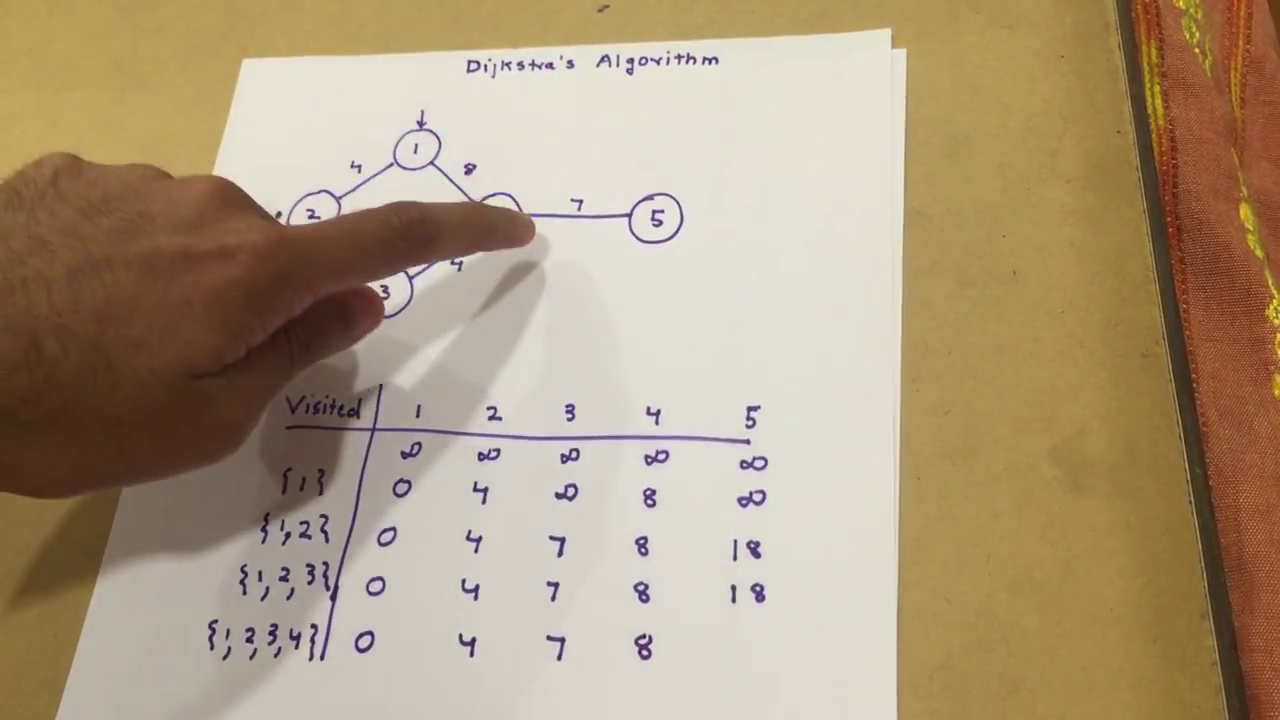 Dijkstra's Algorithm
1
4 8
2 7 5
4
3
Visited 1 2 3 4 5
∞ ∞ ∞ ∞ ∞
{1} 0 4 ∞ 8 ∞
{1,2} 0 4 7 8 18
{1,2,3} 0 4 7 8 18
{1,2,3,4} 0 4 7 8